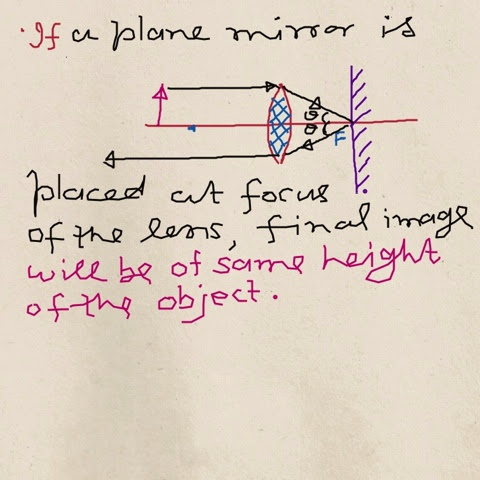 ·If a plane mirror is
θ
θ
F
placed at focus
of the lens, final image
will be of same height
of the object.